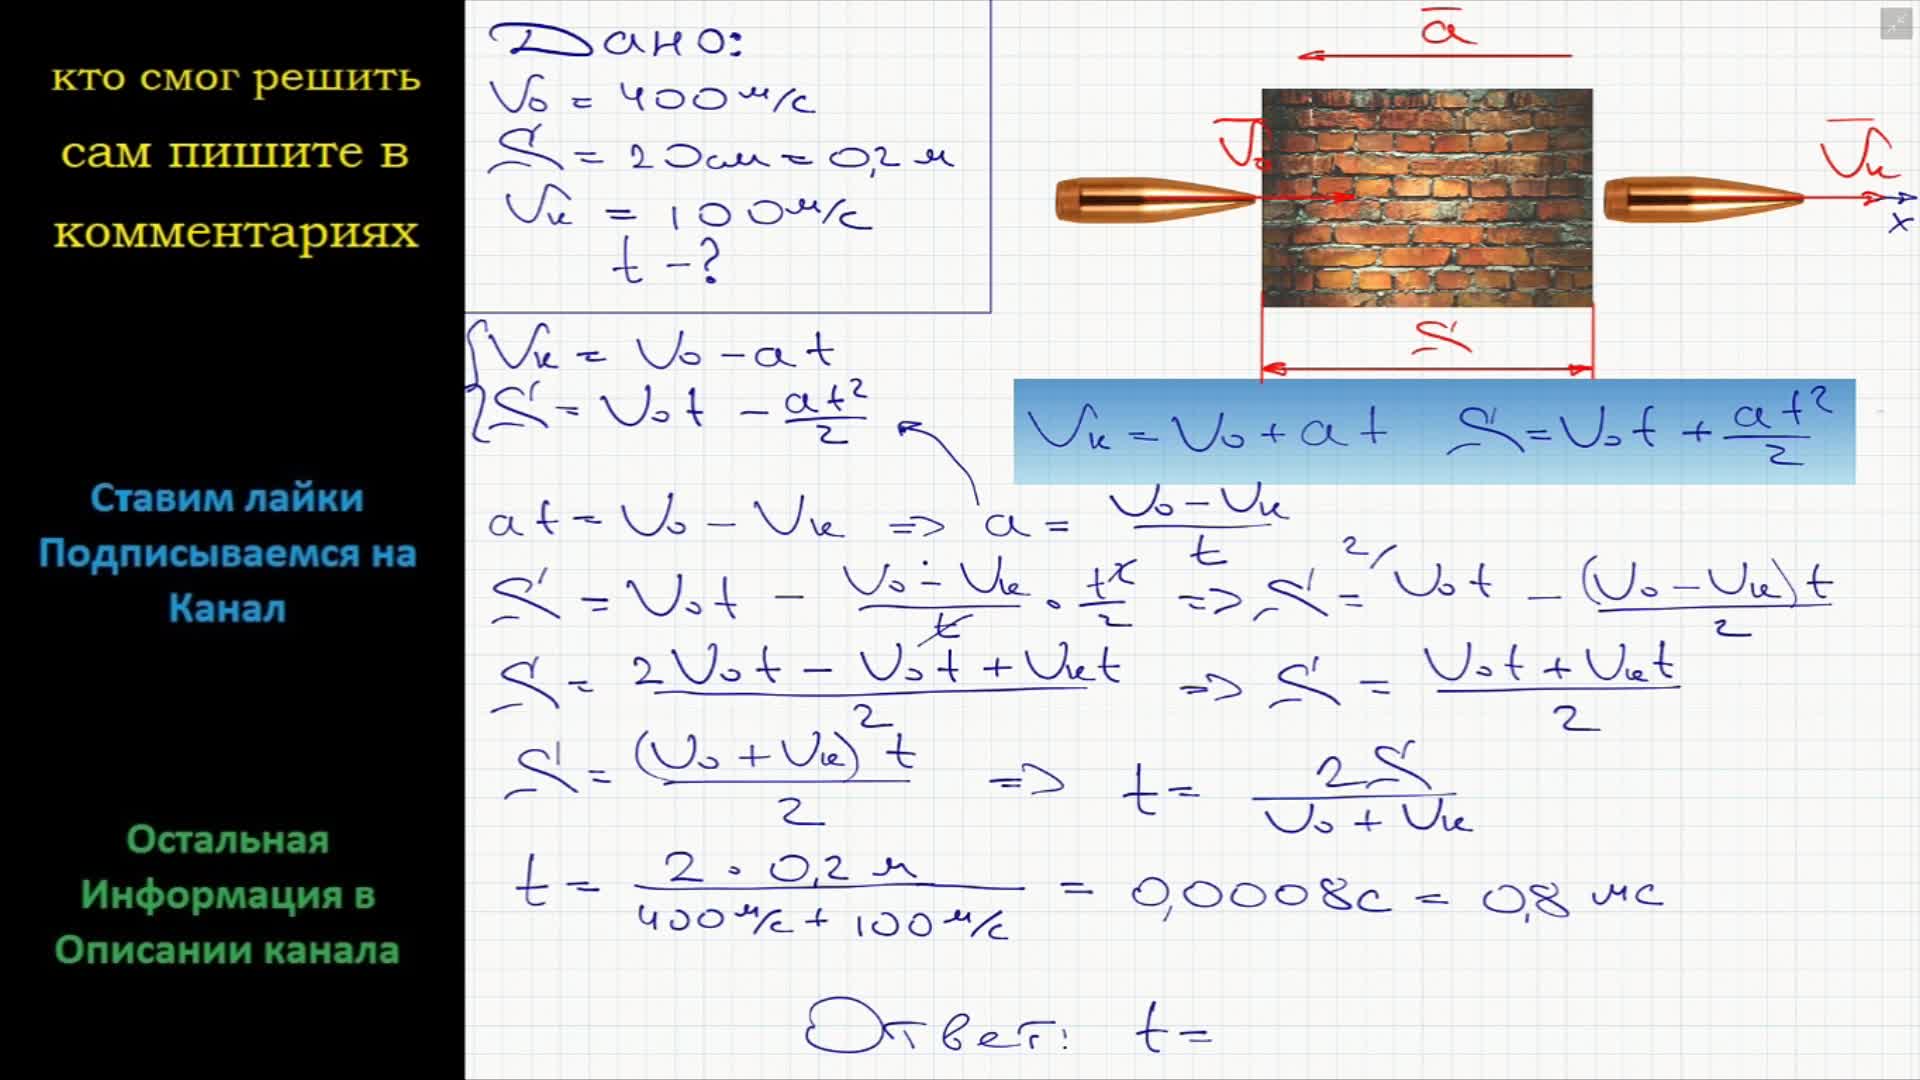 кто смог решить
сам пишите в
комментариях
Ставим лайки
Подписываемся на
Канал
Остальная
Информация в
Описании канала
Дано:
V₀ = 400 м/с
S = 20 см = 0,2 м
Vк = 100 м/с
t - ?
a
V₀
Vк
x
S
Vк = V₀ + at S = V₀t + at²/2
Vк = V₀ - at
S = V₀t - at²/2
at = V₀ - Vк => a = (V₀ - Vк)/t
S = V₀t - (V₀ - Vк)/t · t²/2 => S = ²/V₀t - (V₀ - Vк)t/2
S = (2V₀t - V₀t + Vкt)/2 => S = (V₀t + Vкt)/2
S = (V₀ + Vк)t/2 => t = 2S/(V₀ + Vк)
t = 2 · 0,2 м/(400 м/с + 100 м/с) = 0,0008 с = 0,8 мс
Ответ: t =